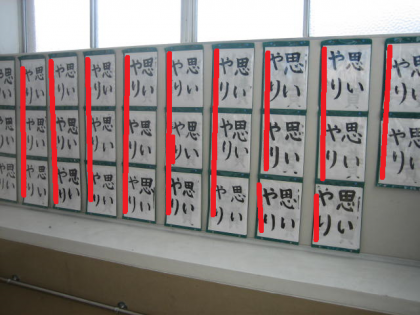 思い
やり
思い
やり
思い
やり
思い
やり
思い
やり
思い
やり
思い
やり
思い
やり
思い
やり
思い
やり
思い
やり
思い
やり
思い
やり
思い
やり
思い
やり
思い
やり
思い
やり
思い
やり
思い
やり
思い
やり
思い
やり
思い
やり
思い
やり
思い
やり
思い
やり
思い
やり